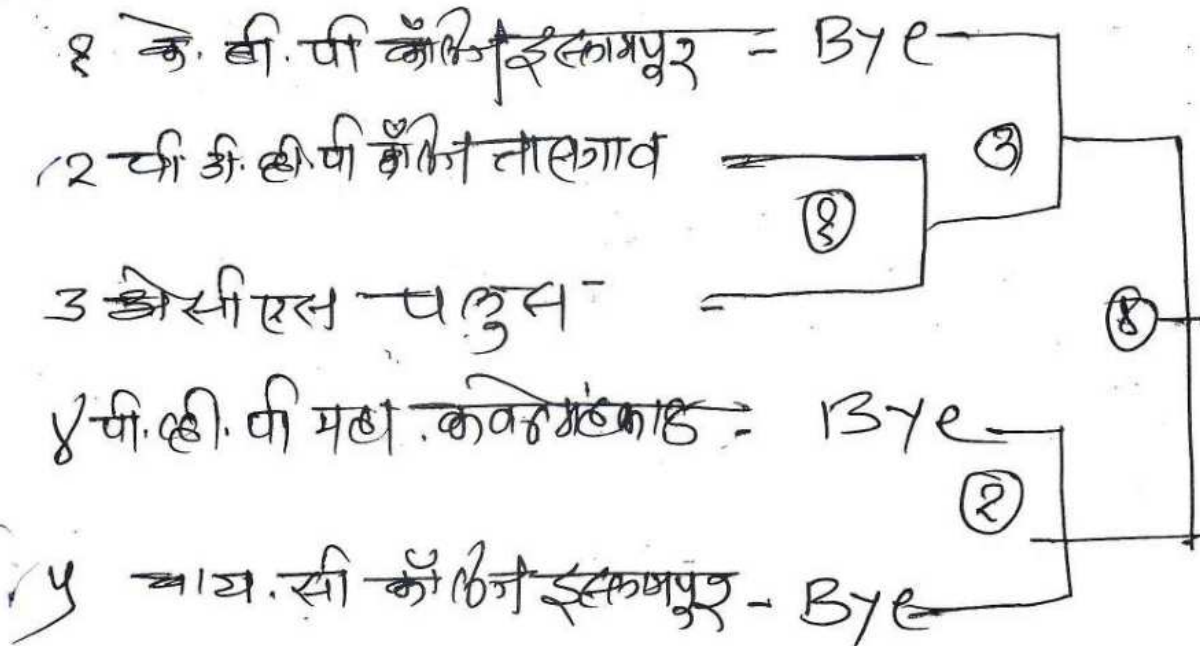 १ के. बी. पी कॉलेज इस्लामपूर = Bye
२ पी. डी. व्ही. पी कॉलेज तासगाव =
(३)
(१)
3 अेसीएस पलुस =
(४)
४ पी. व्ही. पी महा. कवठेमहंकाळ = Bye
(२)
५ वाय. सी कॉलेज इस्लामपूर - Bye